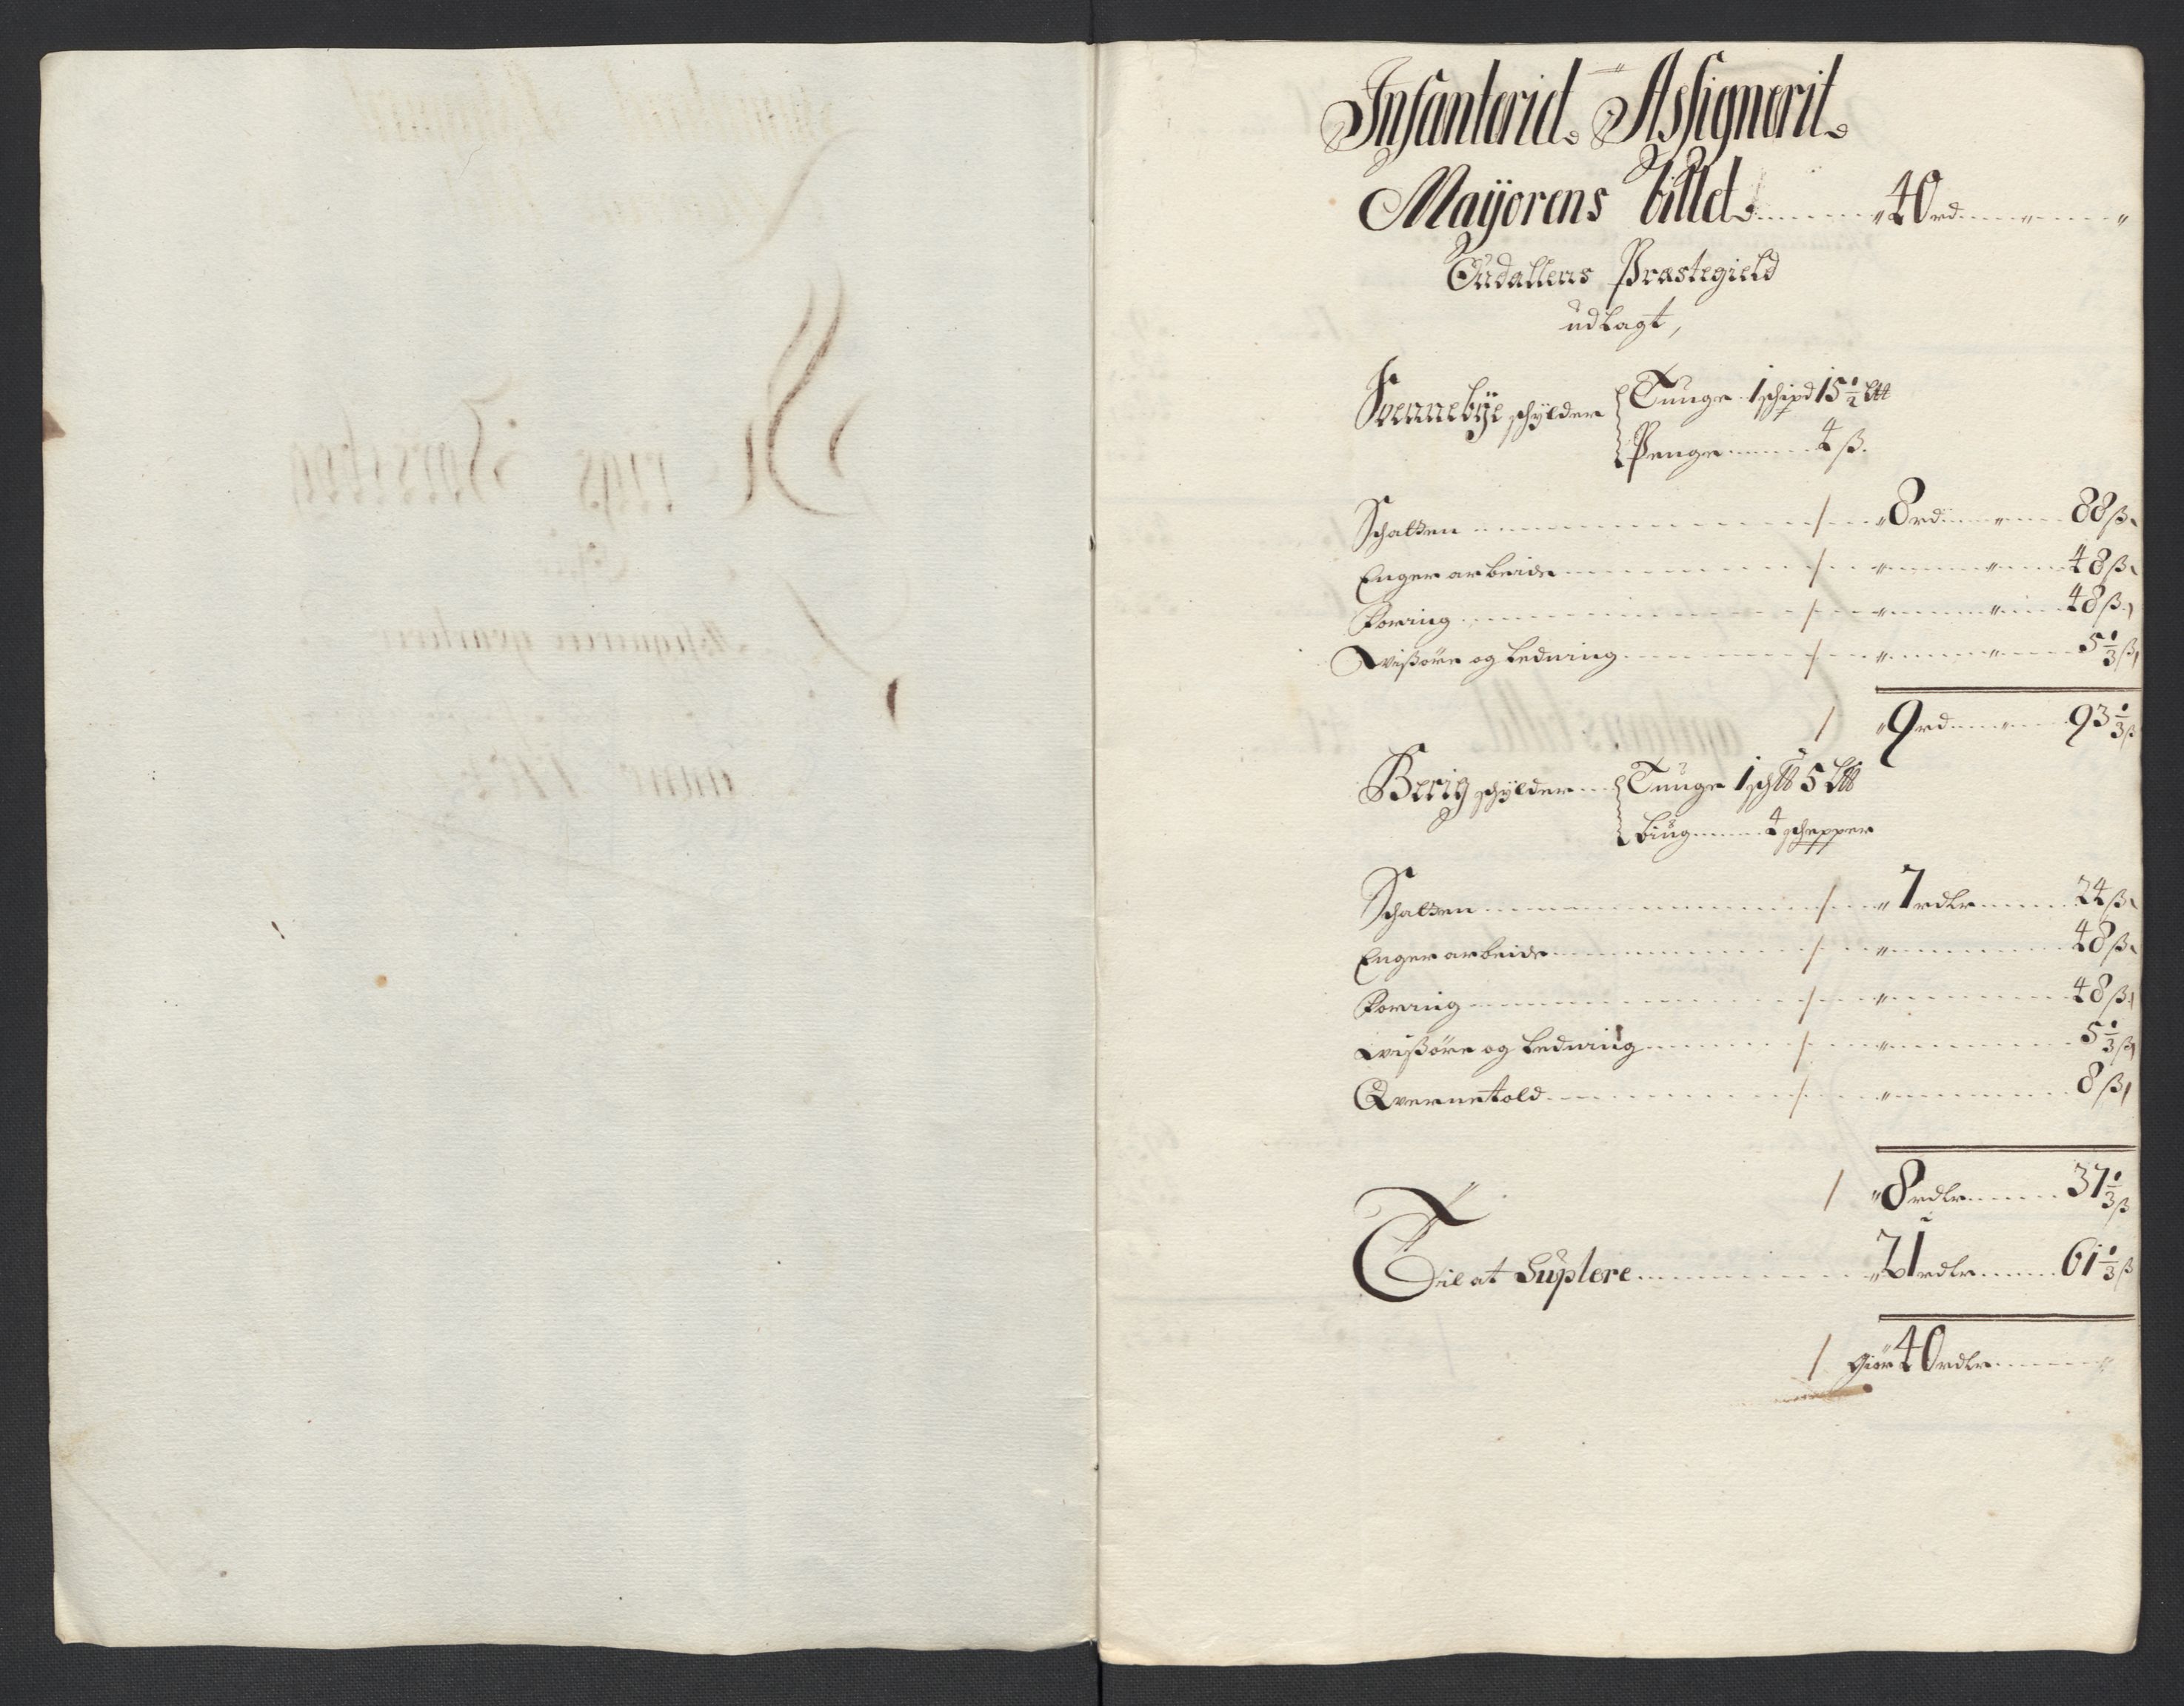 Infanterid. Assignerit.
Mayorens billet. 40 rd " "
Oudallens Præstegield
udlagt,
Svennebye schylder Tunge 1 schipd 15½ Ltt
Penge 4 ß.
Schatten / " 8 rd " 88 ß.
Enger arbeide / " " 48 ß.
Foring / " " 48 ß.
Wißøre og Leduing / " " 5⅓ ß
/ " 9 rd " 93⅓ ß
Berig schylder Tunge 1 schtt 5 Ltt
biug 4 schepper
Schatten / " 7 rdlr 24 ß.
Enger arbeide / " 48 ß.
Foring / " 48 ß.
Wißøre og Leduing / " 5⅓ ß
Qvernetold / " 8 ß
/ " 8 rdlr 37⅓ ß
Til at Suplere " 21 rdlr 61⅓ ß
/ giør 40 rdlr "